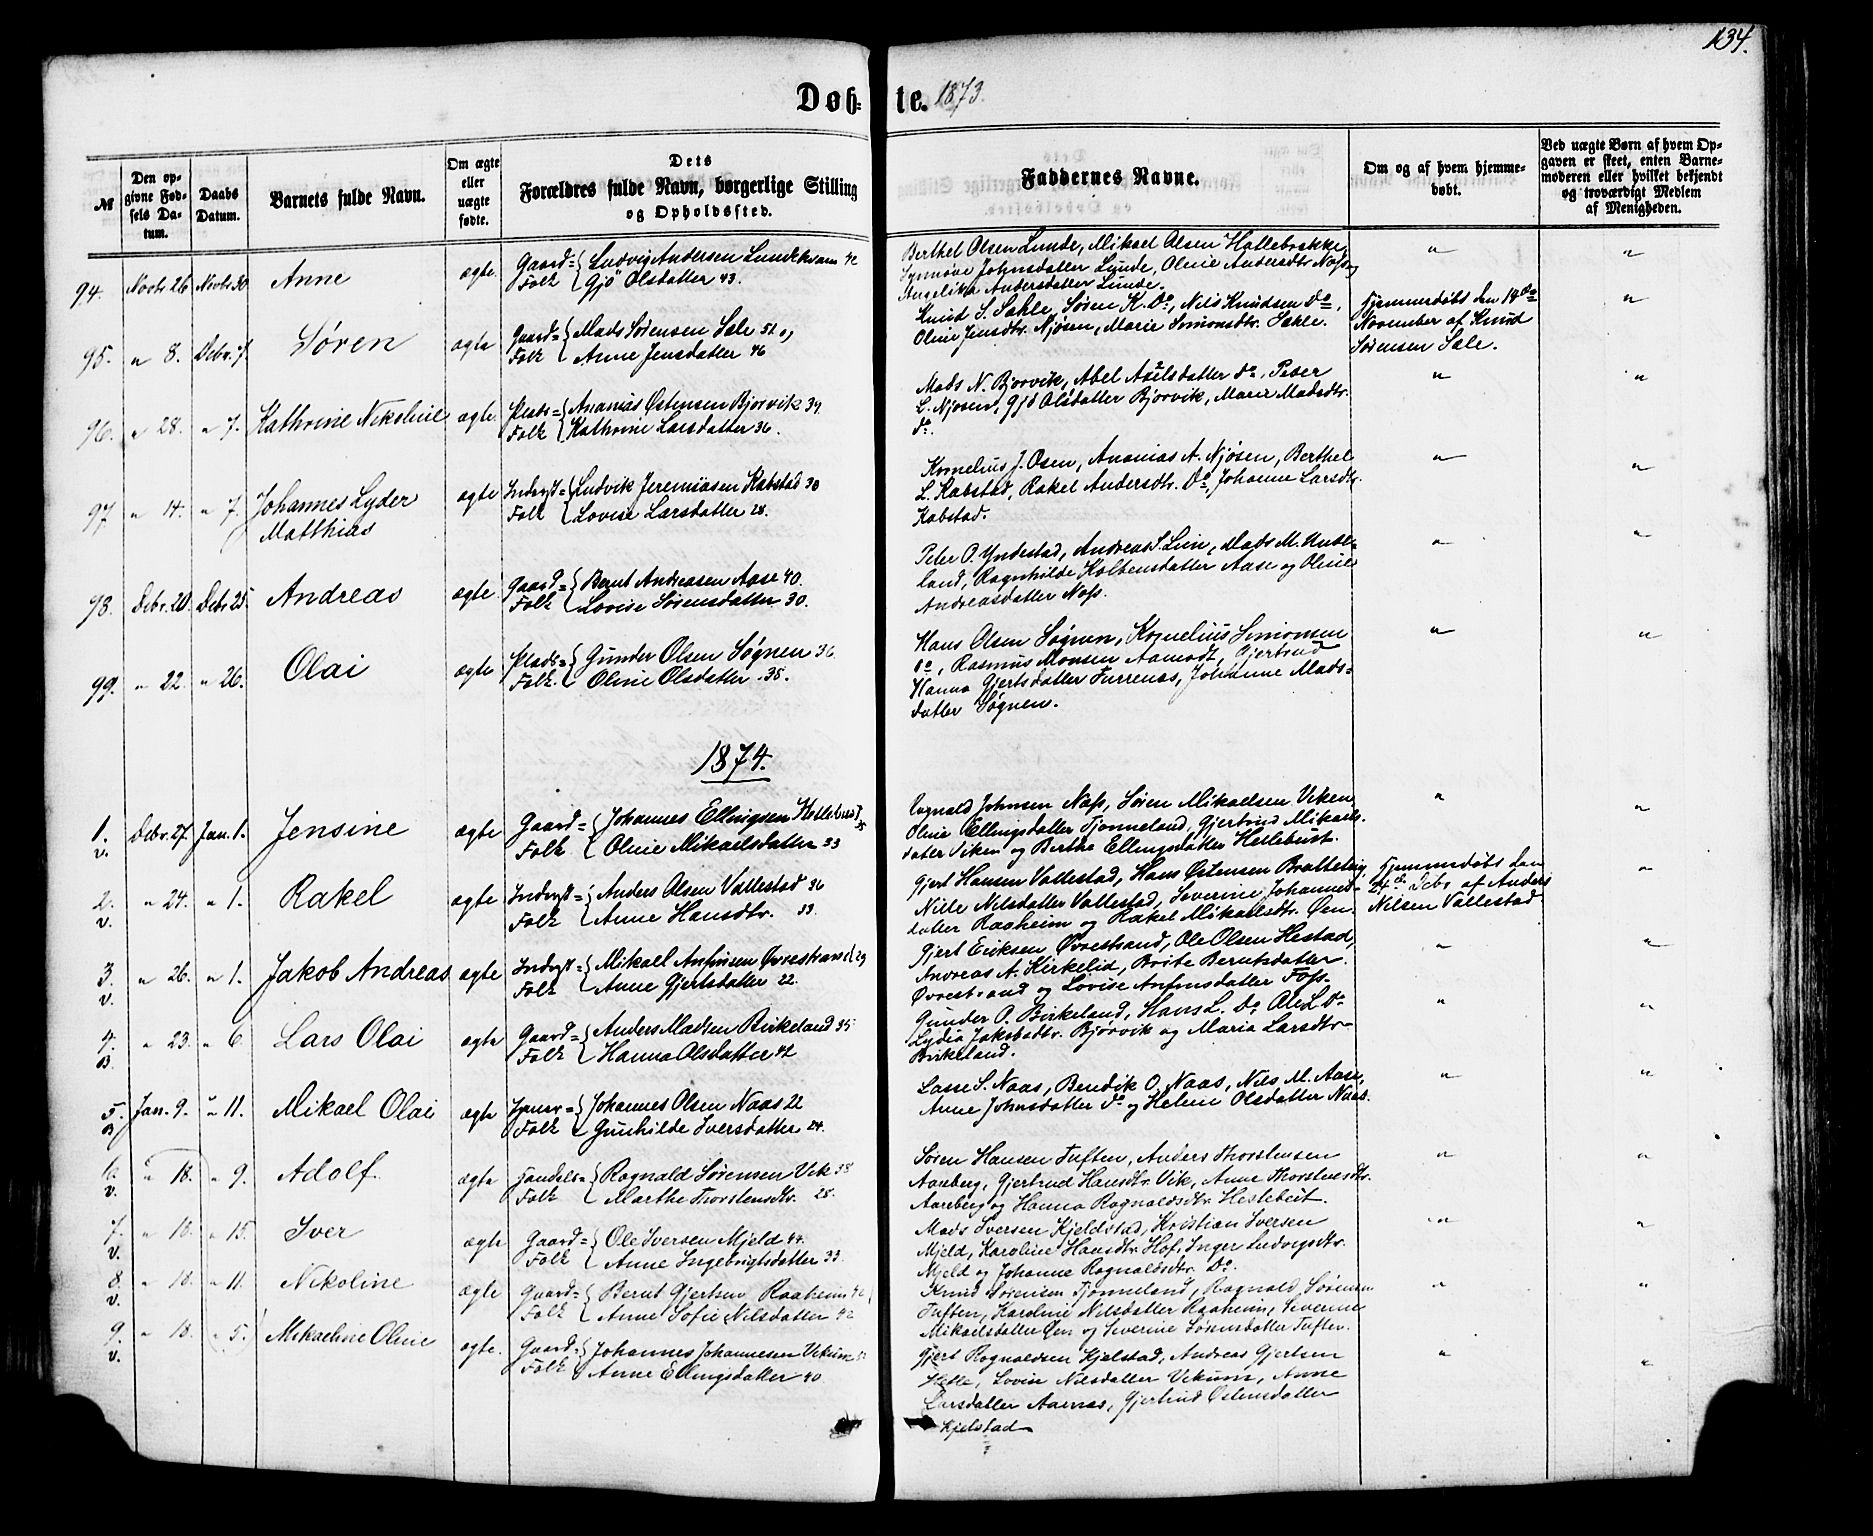 134.
Døb- te. 1873.
№
Den opgivne Fødsels Datum.
Daabs Datum.
Barnets fulde Navn.
Om ægte eller uægte fødte.
Dets Forældres fulde Navn, borgerlige Stilling og Opholdssted.
Faddernes Navne.
Om og af hvem hjemmedøbt.
Ved uægte Børn af hvem Opgaven er skeet, enten Barnemoderen eller hvilket bekjendt og troværdigt Medlem af Menigheden.
94. Novbr 26 Novbr 30 Anne ægte Gaard= Folk { Ludvig Andersen Lundekvam 42
Gjø Olsdatter 43.
Berthel Olsen Lunde, Mikael Olsen Hallebrekke,
Synnøve Johnsdatter Lunde, Oline Andersdtr Nøss,
Angelika Andersdatter Lunde. " "
95. " 8. Debr. 7. Søren ægte Gaard= Folk { Mads Sørensen Sæle 51
Anne Jensdatter 46
Knud S. Sæhle, Søren K. Do, Nils Knudsen do,
Oline Jensdtr. Njøsen, Marie Simonsdtr. Sæhle.
Hjemmedøbt den 19de
November af Knud
Sørensen Sæle. "
96. " 28. " 7. Kathrine Nikoline ægte Plads= Folk { Ananias Østensen Bjorvik 34.
Kathrine Larsdatter 36.
Mads N. Bjorvik, Abel Axelsdatter do, Peder
L. Njøsen, Gjø Olsdatter Bjorvik, Marie Madsdtr.
do. " "
97 " 14. " 7. Johannes Lyder
Matthias
ægte Inderst= Folk { Ludvik Jeremiasen Kabstad 30
Lovise Larsdatter 28.
Kornelius J. Osen, Ananias A. Njøsen, Berthel
L. Kabstad, Rakel Andersdtr. Do, Johanne Larsdtr.
Kabstad. " "
98. Debr. 20. Debr 25. Andreas ægte Gaard= Folk { Bernt Andreasen Aase 40.
Lovise Sørensdatter 30.
Peter O. Yndestad, Andreas S. Lien, Mads M.
land, Ragnhilde Kolbensdatter Aase og Oline
Andreasdatter Nøss. " "
99. " 22. " 26. Olai ægte Plads= Folk. { Gunder Olsen Søgnen 36.
Oline Olsdatter 38.
Hans Olsen Søgnen, Kornelius Simonsen
do, Rasmus Monsen Aamodt, Gjertrud
Hanna Gjertsdatter Furrenæs, Johanne Mads=
datter Søgnen. " "
1874.
1. v. Debr. 27. Jan. 1. Jensine ægte Gaard= Folk { Johannes Ellingsen Hetlebust 35
Oline Mikaelsdatter 33
Ragnald Johnsen Nøss, Søren Mikaelsen Viken
Oline Ellingsdatter Tjønneland, Gjertrud Mikaels=
datter Viken og Berthe Ellingsdatter Hetlebust. " "
2. v. " 24. " 1. Rakel ægte Inderst= Folk { Anders Olsen Vallestad 36
Anne Hansdtr. 33.
Gjert Hansen Vallestad, Hans Østensen Brattebeig
Nille Nilsdatter Vallestad, Severine Johannes=
datter Raaheim og Rakel Mikaelsdtr. Øen.
Hjemmedøbt den
24de Debr af Anders
Nilsen Vallestad. "
3. v. " 26. " 1. Jakob Andreas ægte Inderst= Folk { Mikael Anfinsen Øvrestrand 29
Anne Gjertsdatter 22.
Gjert Eriksen Øvrestrand, Ole Olsen Hestad,
Andreas A. Kirkelid, Brite Berntsdatter
Øvrestrand og Lovise Anfinsdatter Foss. " "
4. B. " 23. " 6. Lars Olai ægte Gaard= Folk { Anders Madsen Birkeland 35
Hanna Olsdatter 42
Gunder O. Birkeland, Hans L. Do Ole L. Do
Lydia Jakobsdtr. Bjørvik og Maria Larsdtr
Birkeland. " "
5. B Jan. 9. " 11. Mikael Olai ægte Folk { Johannes Olsen Naas 22
Gunhilde Iversdatter 24.
Lasse S. Naas, Bendik O. Naas, Nils M. Aase,
Anne Johnsdatter do og Helene Olsdatter Naas. " "
6. v. " 18. " 9. Adolf ægte Handels= Folk { Ragnald Sørensen Vik 38
Marthe Thorstensdtr. 28.
Søren Hansen Tuften, Anders Thorstensen
Aarberg, Gjertrud Hansdtr. Vik, Anne Thorstensdtr.
Aarberg og Hanna Ragnaldsdtr. Hestebeit. " "
7. v. " 10. " 15. Iver ægte Gaard= Folk { Ole Iversen Mjeld 44.
Anne Ingebrigtsdatter 33.
Mads Iversen Kjeldstad, Kristian Iversen
Mjeld, Karoline Hansdtr. Hof, Inger Ludvigsdtr.
Mjeld og Johanne Ragnaldsdtr. Do. " "
8. v. " 18. " 11. Nikoline ægte Gaard= Folk { Bernt Gjertsen Raaheim 42
Anne Sofie Nilsdatter 42
Knud Sørensen Tjønneland, Ragnald Sørensen
Tuften, Karoline Nilsdatter Raaheim, Severine
Mikaelsdatter Øen og Severine Sørensdatter Tuften. " "
9. v. " 18. " 5. Mikaeline Oline ægte. Gaard= Folk { Johannes Johannesen Vikum
Anne Ellingsdatter 40.
Gjert Ragnaldsen Kjelstad, Andreas Gjertsen
Hetle, Lovise Nilsdatter Vikum, Anne
Larsdatter Aarnæs, Gjertrud Østensdatter
Kjelstad " "